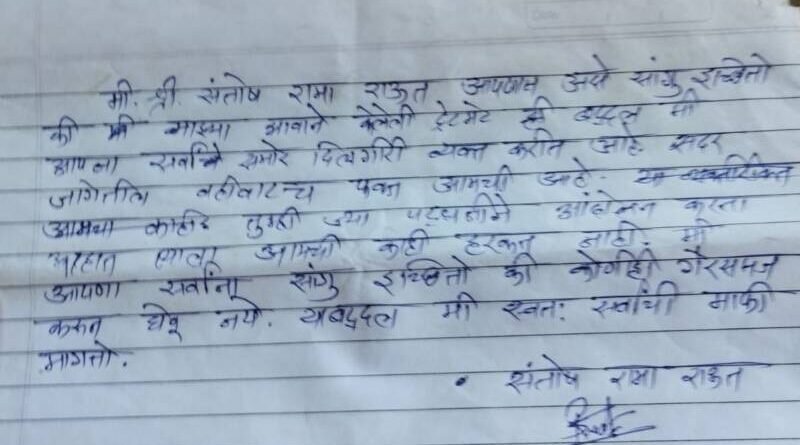 मी. श्री. संतोष रामा राऊत आपणास असे सांगु इच्छितो
की मी माझ्या भावाने केलेली ट्रेटमेंट ही बद्दल मी
आपणा सर्वांचे समोर दिलगीरी व्यक्त करीत आहे सदर
जागेतील वहीवाटच फक्त आमची आहे.
आमचा काहीही तुम्ही ज्या पद्धतीने आंदोलन करता
आहात त्याला आमची काही हरकत नाही. मी
आपणा सर्वांना सांगु इच्छितो की कोणीही गैरसमज
करून घेवू नये. याबद्दल मी स्वत: सर्वांची माफी
मागतो.
• संतोष रामा राऊत